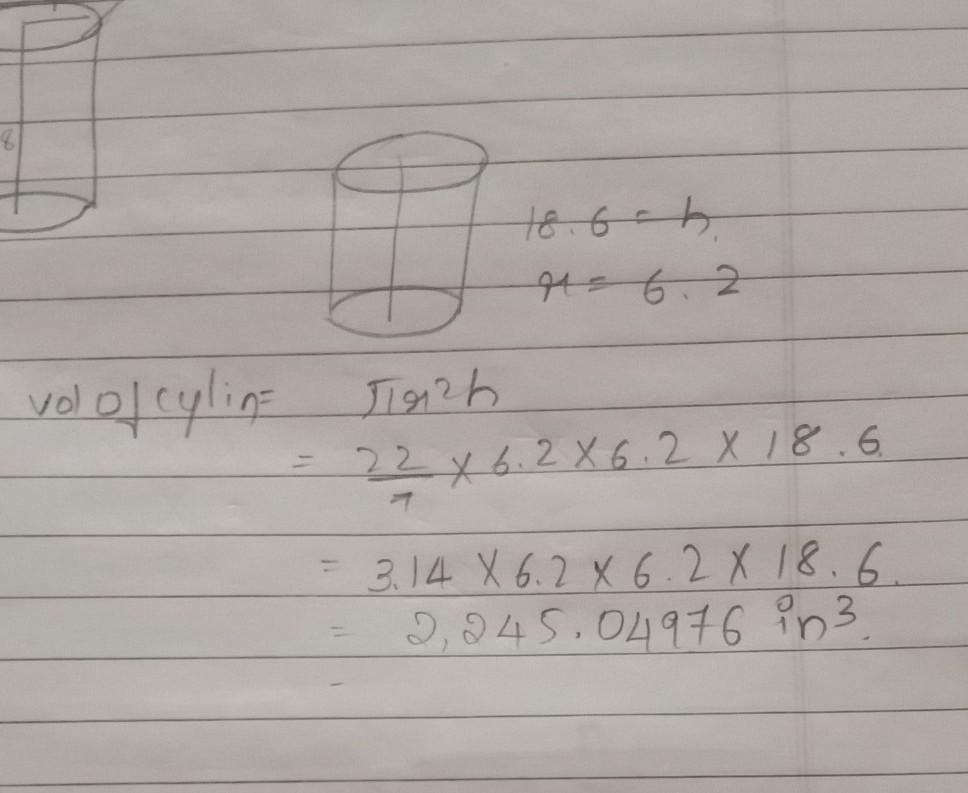 8
18.6 = h.
r = 6.2
vol of cylin = πr²h
= 22/7 × 6.2 × 6.2 × 18.6.
= 3.14 × 6.2 × 6.2 × 18.6.
= 2,245.04976 in³.
-